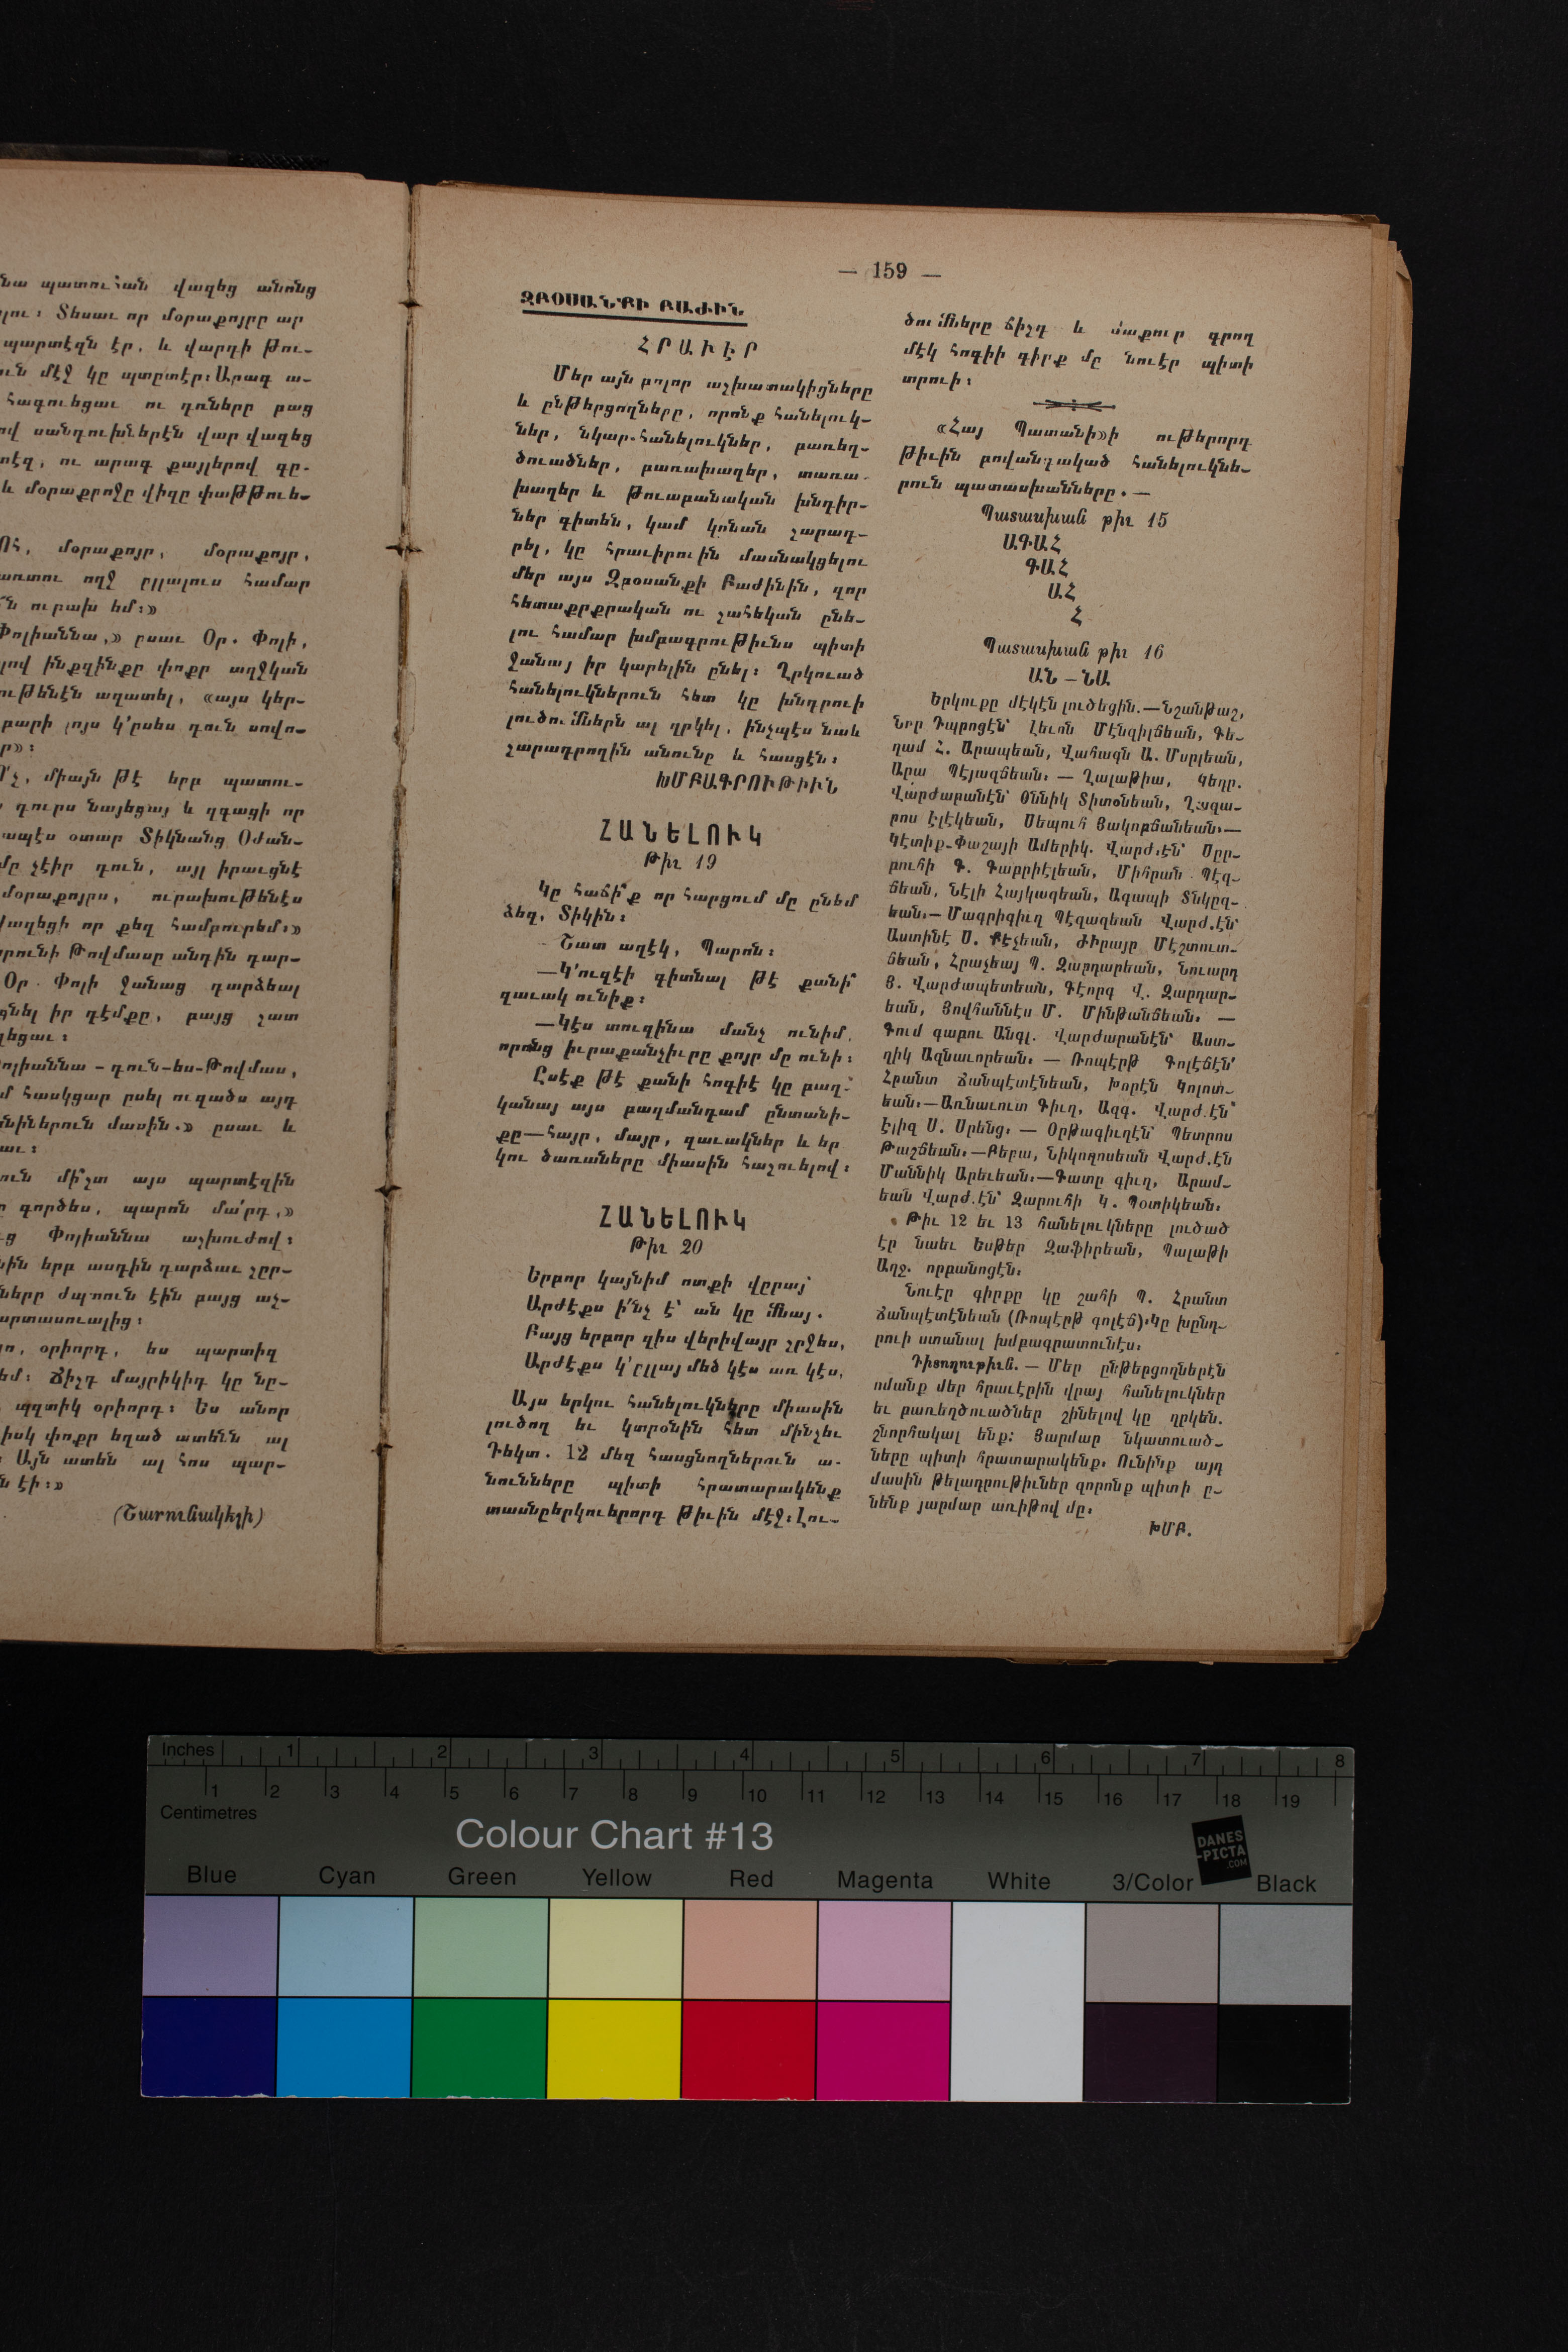 նա պատուհան վազեց անոնց
լու։ Տեսաւ որ մօրաքոյրը ար
պարտէզն էր, և վարդի թու-
ուն մէջ կը պտըտէր։ Արագ ա-
հագուեցաւ ու դռները բաց
ով սանդուխներէն վար վազեց
տէզ, ու արագ քայլերով գը-
և մօրաքրոջը վիզը փաթթուե-
Ոհ, մօրաքոյր, մօրաքոյր,
առտու ողջ ըլլալուս համար
՞ն ուրախ եմ։»
Փոլիաննա,» ըսաւ Օր. Փոլի,
լով ինքզինքը փոքր աղջկան
ութենէն ազատել, «այս կեր-
բարի լոյս կ՚ըսես դուն սովո-
ր»։
Ո՛չ, միայն թէ երբ պատու-
դուրս նայեցայ և զգացի որ
ապէս օտար Տիկնանց Օժան-
մը չէիր դուն, այլ իրաւցնէ
մօրաքոյրս, ուրախութենէս
վազեցի որ քեզ համբուրեմ։»
րունի Թովմասը անդին դար-
Օր Փոլի ջանաց դարձեալ
ցնել իր դէմքը, բայց շատ
ղեցաւ։
ոլիաննա-դուն-ես-Թովմաս,
մ հասկցար ըսել ուզածս այդ
նիներուն մասին.» ըսաւ և
աւ։
ուն մի՞շտ այս պարտէզին
ը գործես, պարոն մա՛րդ,»
ց Փոլիաննա աշխուժով։
ին երբ ասդին դարձաւ շըր-
ները ժպտուն էին բայց աչ-
արտասուալից։
յո, օրիորդ, ես պարտիզ
եմ։ Ճիշդ մայրիկիդ կը նը-
պզտիկ օրիորդ։ Ես անոր
իսկ փոքր եղած ատենն ալ
Այն ատեն ալ հոս պար-
ն էի։»
(Շարունակելի)
— 159 —
ԶԲՕՍԱՆՔԻ ԲԱԺԻՆ
ՀՐԱՒԷՐ
Մեր այն բոլոր աշխատակիցները
և ընթերցողները, որոնք հանելուկ-
ներ, նկար-հանելուկներ, բառեղ-
ծուածներ, բառախաղեր, տառա-
խաղեր և թուաբանական խնդիր-
ներ գիտեն, կամ կրնան շարադ-
րել, կը հրաւիրուին մասնակցելու
մեր այս Զբօսանքի Բաժինին, զոր
հետաքրքրական ու շահեկան ընե-
լու համար խմբագրութիւնս պիտի
ջանայ իր կարելին ընել։ Ղրկուած
հանելուկներուն հետ կը խնդրուի
լուծումներն ալ ղրկել, ինչպէս նաև
շարադրողին անունը և հասցէն։
ԽՄԲԱԳՐՈՒԹԻՒՆ
ՀԱՆԵԼՈՒԿ
Թիւ 19
Կը հաճի՞ք որ հարցում մը ընեմ
ձեզ, Տիկին։
Շատ աղէկ, Պարոն։
—Կ՚ուզէի գիտնալ թէ քանի՞
զաւակ ունիք։
—Կէս տուզինա մանչ ունիմ,
որոնց իւրաքանչիւրը քոյր մը ունի։
Ըսէք թէ քանի հոգիէ կը բաղ-
կանայ այս բազմանդամ ընտանի-
քը—հայր, մայր, զաւակներ և եր
կու ծառաները միասին հաշուելով։
ՀԱՆԵԼՈՒԿ
Թիւ 20
Երբոր կայնիմ ոտքի վըրայ՝
Արժէքս ի՛նչ է՝ ան կը մնայ.
Բայց երբոր զիս վերիվայր շրջես,
Արժէքս կ՚ըլլայ մեծ կէս առ կէս,
Այս երկու հանելուկները միասին
լուծող եւ կտրօնին հետ մինչեւ
Դեկտ. 12 մեզ հասցնողներուն ա-
նունները պիտի հրատարակենք
տասնըերկուերորդ թիւին մէջ։ Լու-
ծումները ճիշդ և մաքուր գրող
մէկ հոգիի գիրք մը նուէր պիտի
տրուի։
«Հայ Պատանի»ի ութերորդ
թիւին բովանդակած հանելուկնե-
րուն պատասխանները. —
Պատասխան թիւ 15
ԱԳԱՀ
ԳԱՀ
ԱՀ
Հ
Պատասխան թիւ 16
ԱՆ – ՆԱ
Երկուքը մէկէն լուծեցին.—Նշանթաշ,
Նոր Դպրոցէն՝ Լեւոն Մէնզիլճեան, Գե-
ղամ Հ. Արապեան, Վահագն Ա. Մսրլեան,
Արա Պէյազճեան։ — Ղալաթիա, Կեդր.
Վարժարանէն՝ Օննիկ Տիտօնեան, Ղազա-
րոս Էլէկեան, Սեպուհ Յակոբճանեան։—
Կէտիք-Փաշայի Ամերիկ. Վարժ.էն՝ Սըր-
բուհի Գ. Գաբրիէլեան, Միհրան Պէզ-
ճեան, Նէլի Հայկազեան, Ագապի Տնկըզ-
եան։— Մագրիգիւղ Պէզազեան Վարժ.էն՝
Աստինէ Ս. Քէչեան, Ժիրայր Մէշտուտ-
ճեան, Հրաչեայ Պ. Զարդարեան, Նուարդ
Յ. Վարժապետեան, Գէորգ Վ. Զարդար-
եան, Յովհաննէս Մ. Մինթանճեան։ —
Գում գաբու Անգլ. Վարժարանէն՝ Աստ-
ղիկ Ազնաւորեան։ — Ռոպէրթ Գոլէճէն՝
Հրանտ Ճանպէտէնեան, Խորէն Կոլոտ-
եան։—Առնաւուտ Գիւղ, Ազգ. Վարժ.էն՝
Էլիզ Ս. Սրենց։ — Օրթագիւղէն՝ Պետրոս
Թաշճեան։—Բերա, Նիկողոսեան Վարժ.էն
Մաննիկ Արեւեան։—Գատը գիւղ, Արամ-
եան Վարժ.էն՝ Զարուհի Կ. Պօտիկեան։
Թիւ 12 եւ 13 հանելուկները լուծած
էր նաեւ Եսթեր Զաֆիրեան, Պալաթի
Աղջ. որբանոցէն։
Նուէր գիրքը կը շահի Պ. Հրանտ
Ճանպէտէնեան (Ռոպէրթ գոլէճ)։Կը խընդ-
րուի ստանալ խմբագրատունէս։
Դիտողութիւն. — Մեր ընթերցողներէն
ոմանք մեր հրաւէրին վրայ հանելուկներ
եւ բառեղծուածներ շինելով կը ղրկեն.
շնորհակալ ենք։ Յարմար նկատուած-
ները պիտի հրատարակենք։ Ունինք այդ
մասին թելադրութիւններ զորոնք պիտի ը-
նենք յարմար առիթով մը։
ԽՄԲ.
Inches 1 2 3 4 5 6 7 8
1 2 3 4 5 6 7 8 9 10 11 12 13 14 15 16 17 18 19
Centimetres
Colour Chart #13
DANES
-PICTA
.COM
Blue Cyan Green Yellow Red Magenta White 3/Color Black